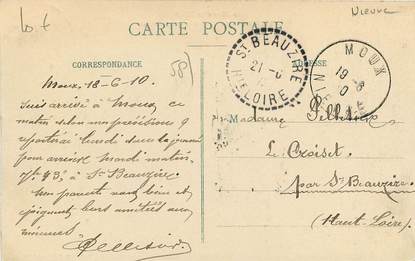 Lot
Vienne
CARTE POSTALE
CORRESPONDANCE
ADRESSE
58
Moux, 18-6-10.
Suis arrivé à Moux ce
matin selon mes prévisions
repartirai lundi sur la journée
pour arriver mardi matin,
à St Beauzire
parents vont bien et
joignent leurs amitiés aux
miennes
Pelletier
ST BEAUZIRE
21 -6
HTE LOIRE
MOUX
19 -6
10
Madame Pelletier
Le Croizet
par St Beauzire
(Haute Loire)